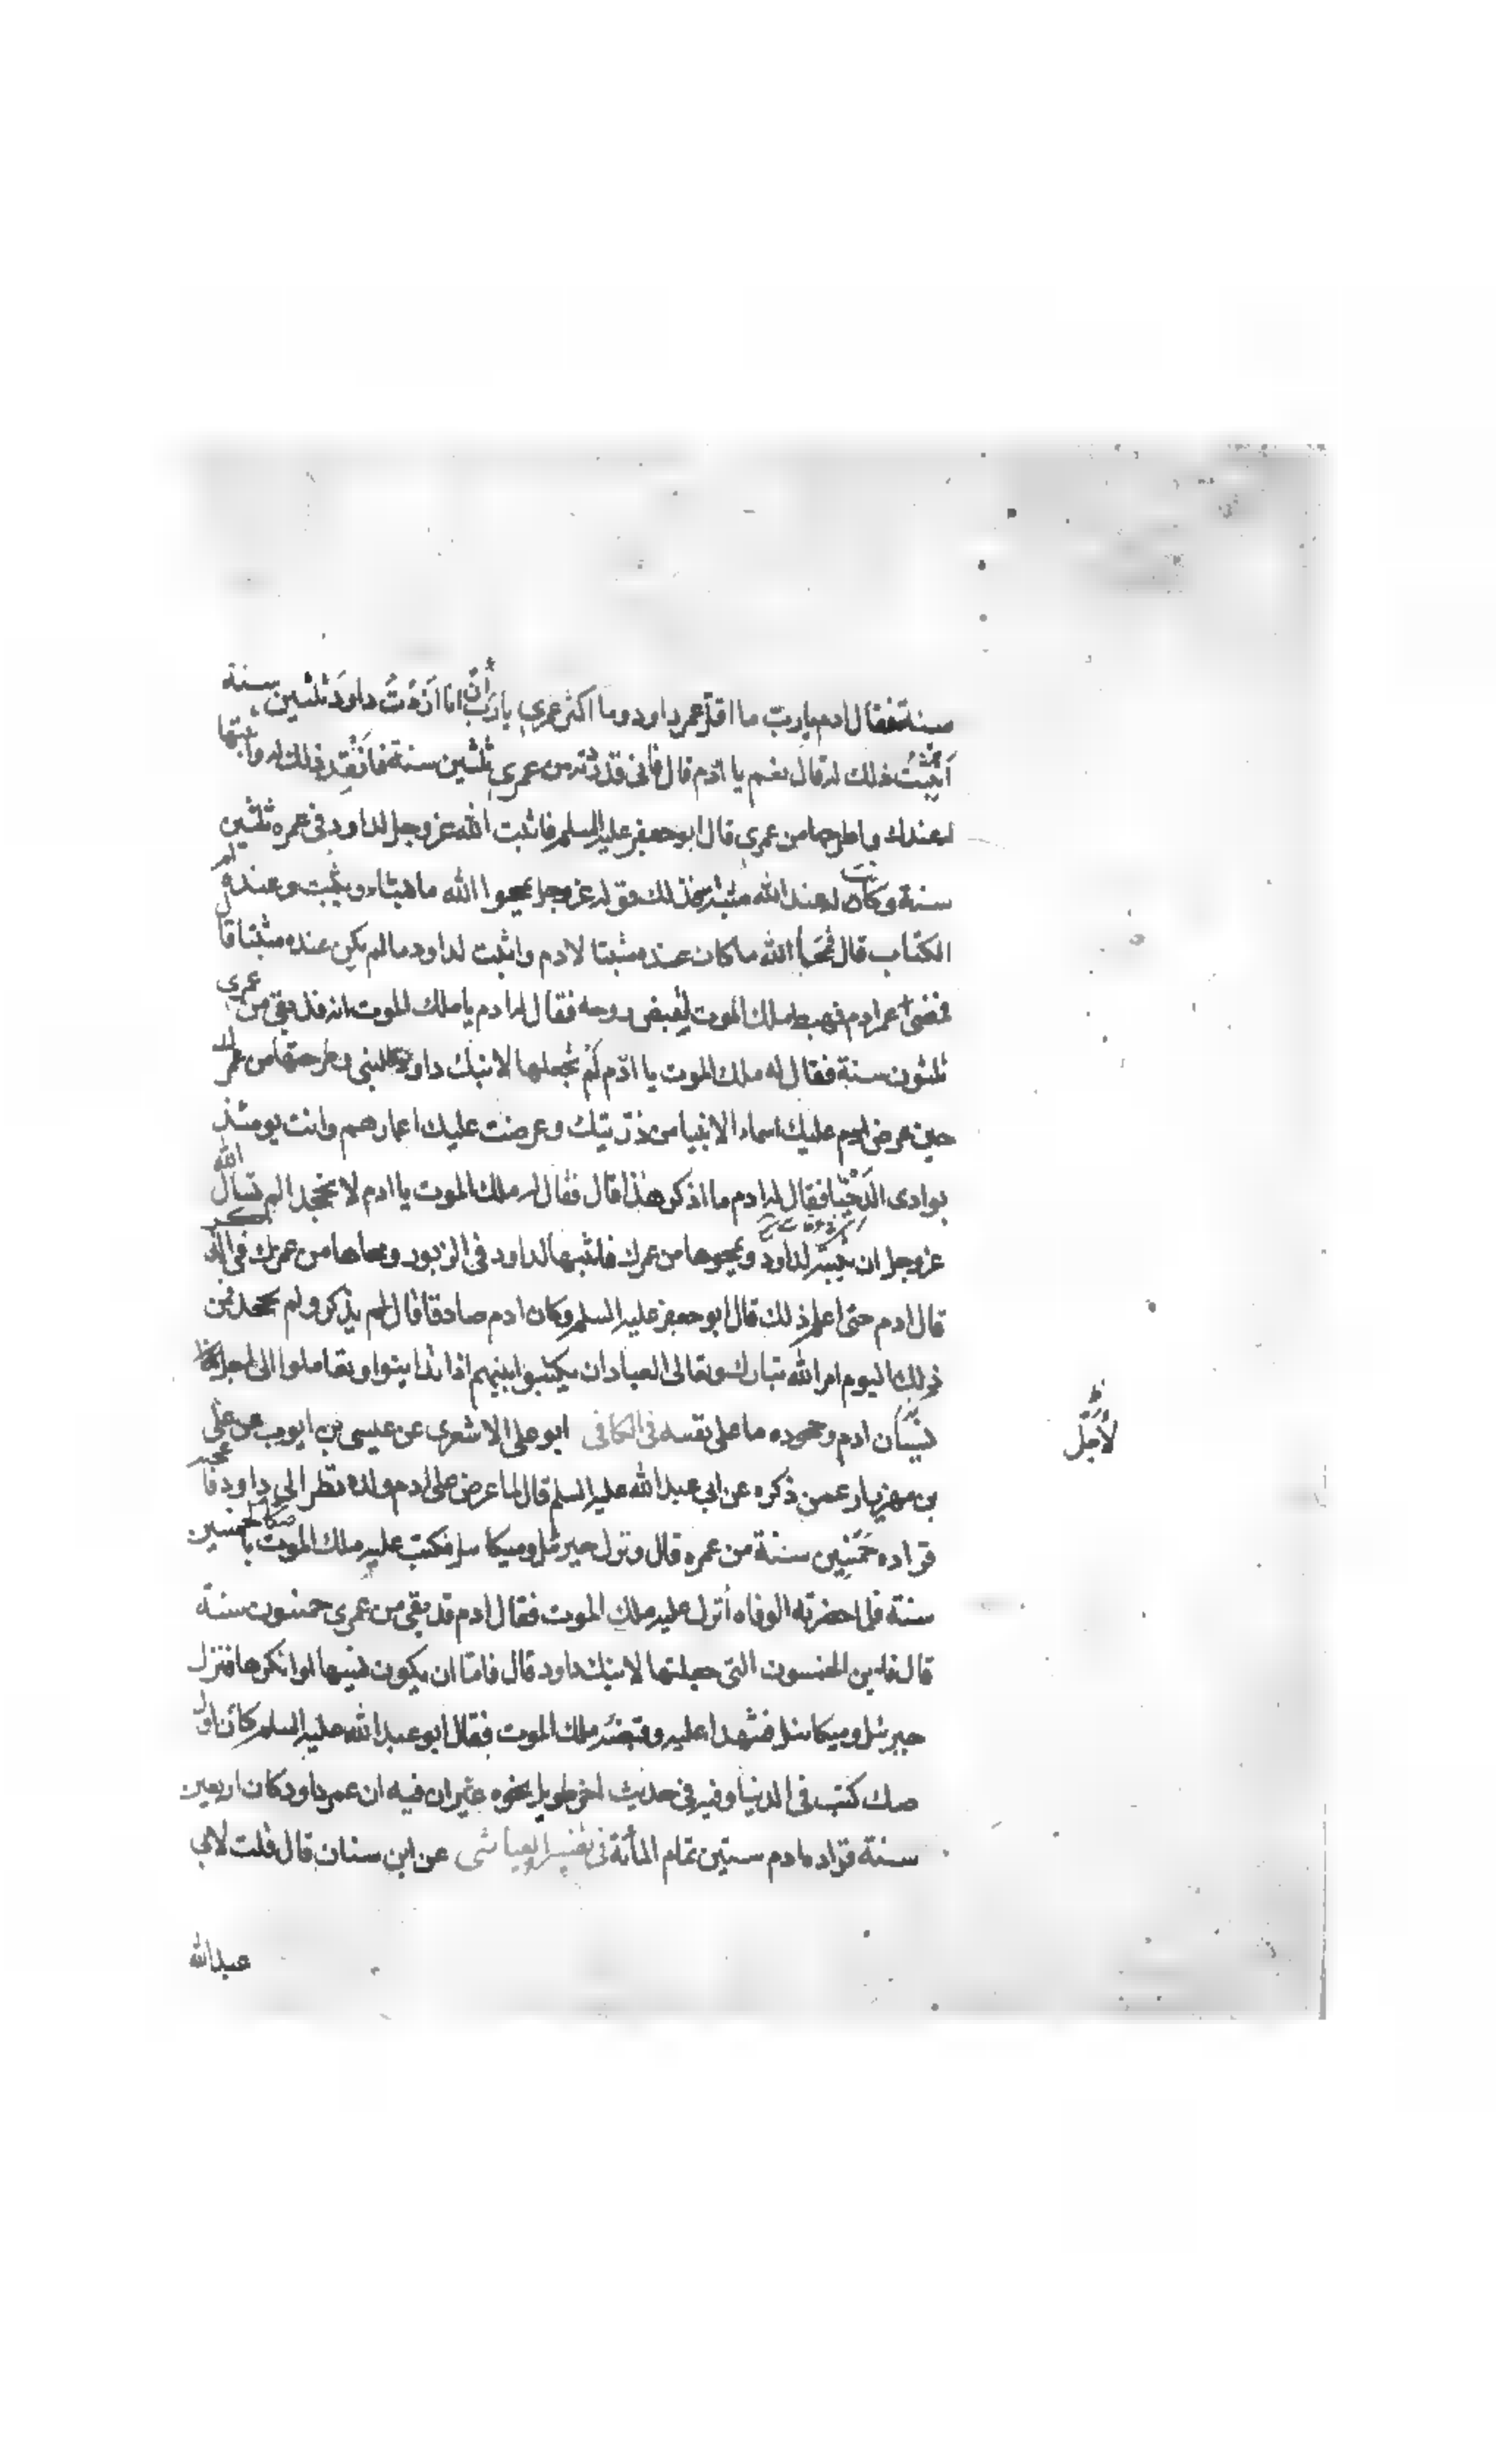 سنة فقال ادم يا رب ما اقل عمر داود وما اكثر عمري يا رب ان انا ازدت داود ثلثين سنة
أيثبت ذلك له قال نعم يا ادم قال فاني قد زدته من عمري ثلثين سنة فانفذ ذلك له واثبتها
له عندك واطرحها من عمري قال ابو جعفر عليه السلم فاثبت الله عز وجل لداود في عمره ثلثين
سنة وكانت له عند الله مثبتة فذلك قوله عز وجل يمحوا الله ما يشاء ويثبت وعنده ام
الكتاب قال فمحا الله ما كان عنده مثبتا لادم واثبت لداود ما لم يكن عنده مثبتا قال
فمضى عمر ادم فهبط ملك الموت لقبض روحه فقال له ادم يا ملك الموت انه قد بقي من عمري
ثلثون سنة فقال له ملك الموت يا ادم لم تجعلها لابنك داود النبي وطرحتها من عمرك
حين عرض عليك اسماء الانبيا من ذريتك وعرضت عليك اعمارهم وانت يومئذ
بوادى الدخيا فقال له ادم ما اذكر هذا قال فقال له ملك الموت يا ادم لا تجحد الم تسأل الله
عز وجل ان يثبتها لداود ويمحوها من عمرك فاثبتها لداود في الزبور ومحاها من عمرك في الذكر
قال ادم حتى اعلم ذلك قال ابو جعفر عليه السلم وكان ادم صادقا قال لم يذكر ولم يجحد فمن
ذلك اليوم امر الله تبارك وتعالى العباد ان يكتبوا بينهم اذا تداينوا وتعاملوا الى اجل
نسيان ادم وجحوده ما على نفسه في الكافي ابو علي الاشعري عن عيسى بن ايوب عن علي
لأجل
بن مهزيار عمن ذكره عن ابي عبد الله عليه السلم قال لما عرض على ادم ولده نظر الى داود فاعجبه
فزاده خمسين سنة من عمره قال ونزل جبرئيل وميكائيل فكتب عليه ملك الموت صكا بالخمسين
سنة فلما حضرته الوفاه أنزل عليه ملك الموت فقال ادم قد بقي من عمري خمسون سنة
قال فاين الخمسون التي جعلتها لابنك داود قال فاما ان يكون نسيها او انكرها فنزل
جبرئيل وميكائيل فشهدا عليه وقبضه ملك الموت فقال ابو عبد الله عليه السلم كان اول
صك كتب في الدنيا وفيه في حديث اخر طويل نحوه غير ان فيه ان عمر داود كان اربعين
سنة فزاده ادم ستين تمام المأئة في تفسير العياشى عن ابن سنان قال قلت لابي
عبد الله